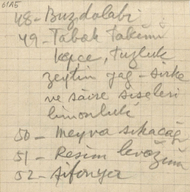 48- Buzdolabı
49- Tabak takımı
kepçe, tuzluk
zeytin yağ - sirke
ve sair şişeleri
limonluk
50- Meyva sıkacağı
51- Resim levazımı
52- Şifonyer